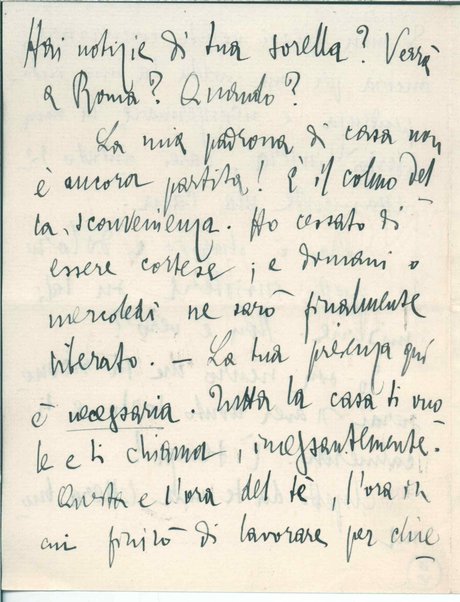 Hai notizie di tua sorella? Verrà
a Roma? Quando?
La mia padrona di casa non
è ancora partita! È il colmo del
la sconvenienza. Ho cessato di
essere cortese; e domani o
mercoledì ne sarò finalmente
liberato. — La tua presenza qui
è necessaria. Tutta la casa ti vuo
le e ti chiama, incessantemente.
Questa è l'ora del tè, l'ora in
cui finirò di lavorare per due